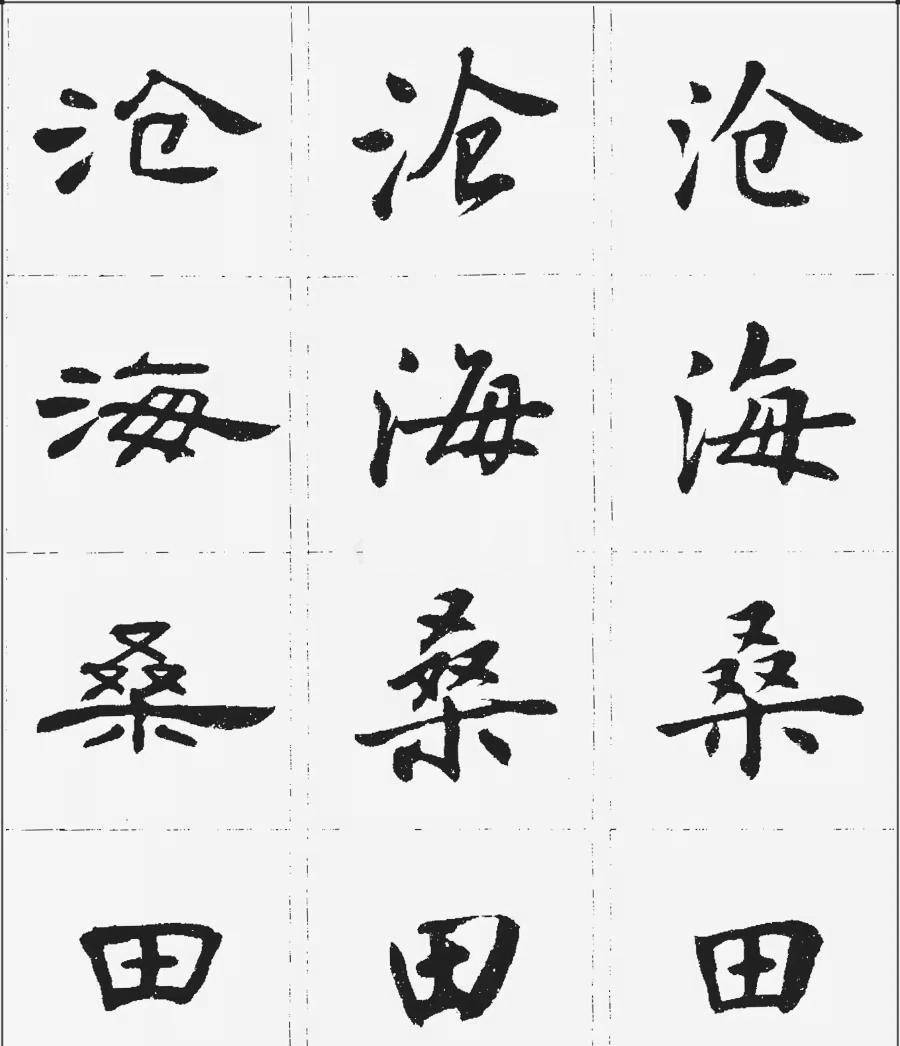 沧 沧 沧
海 海 海
桑 桑 桑
田 田 田